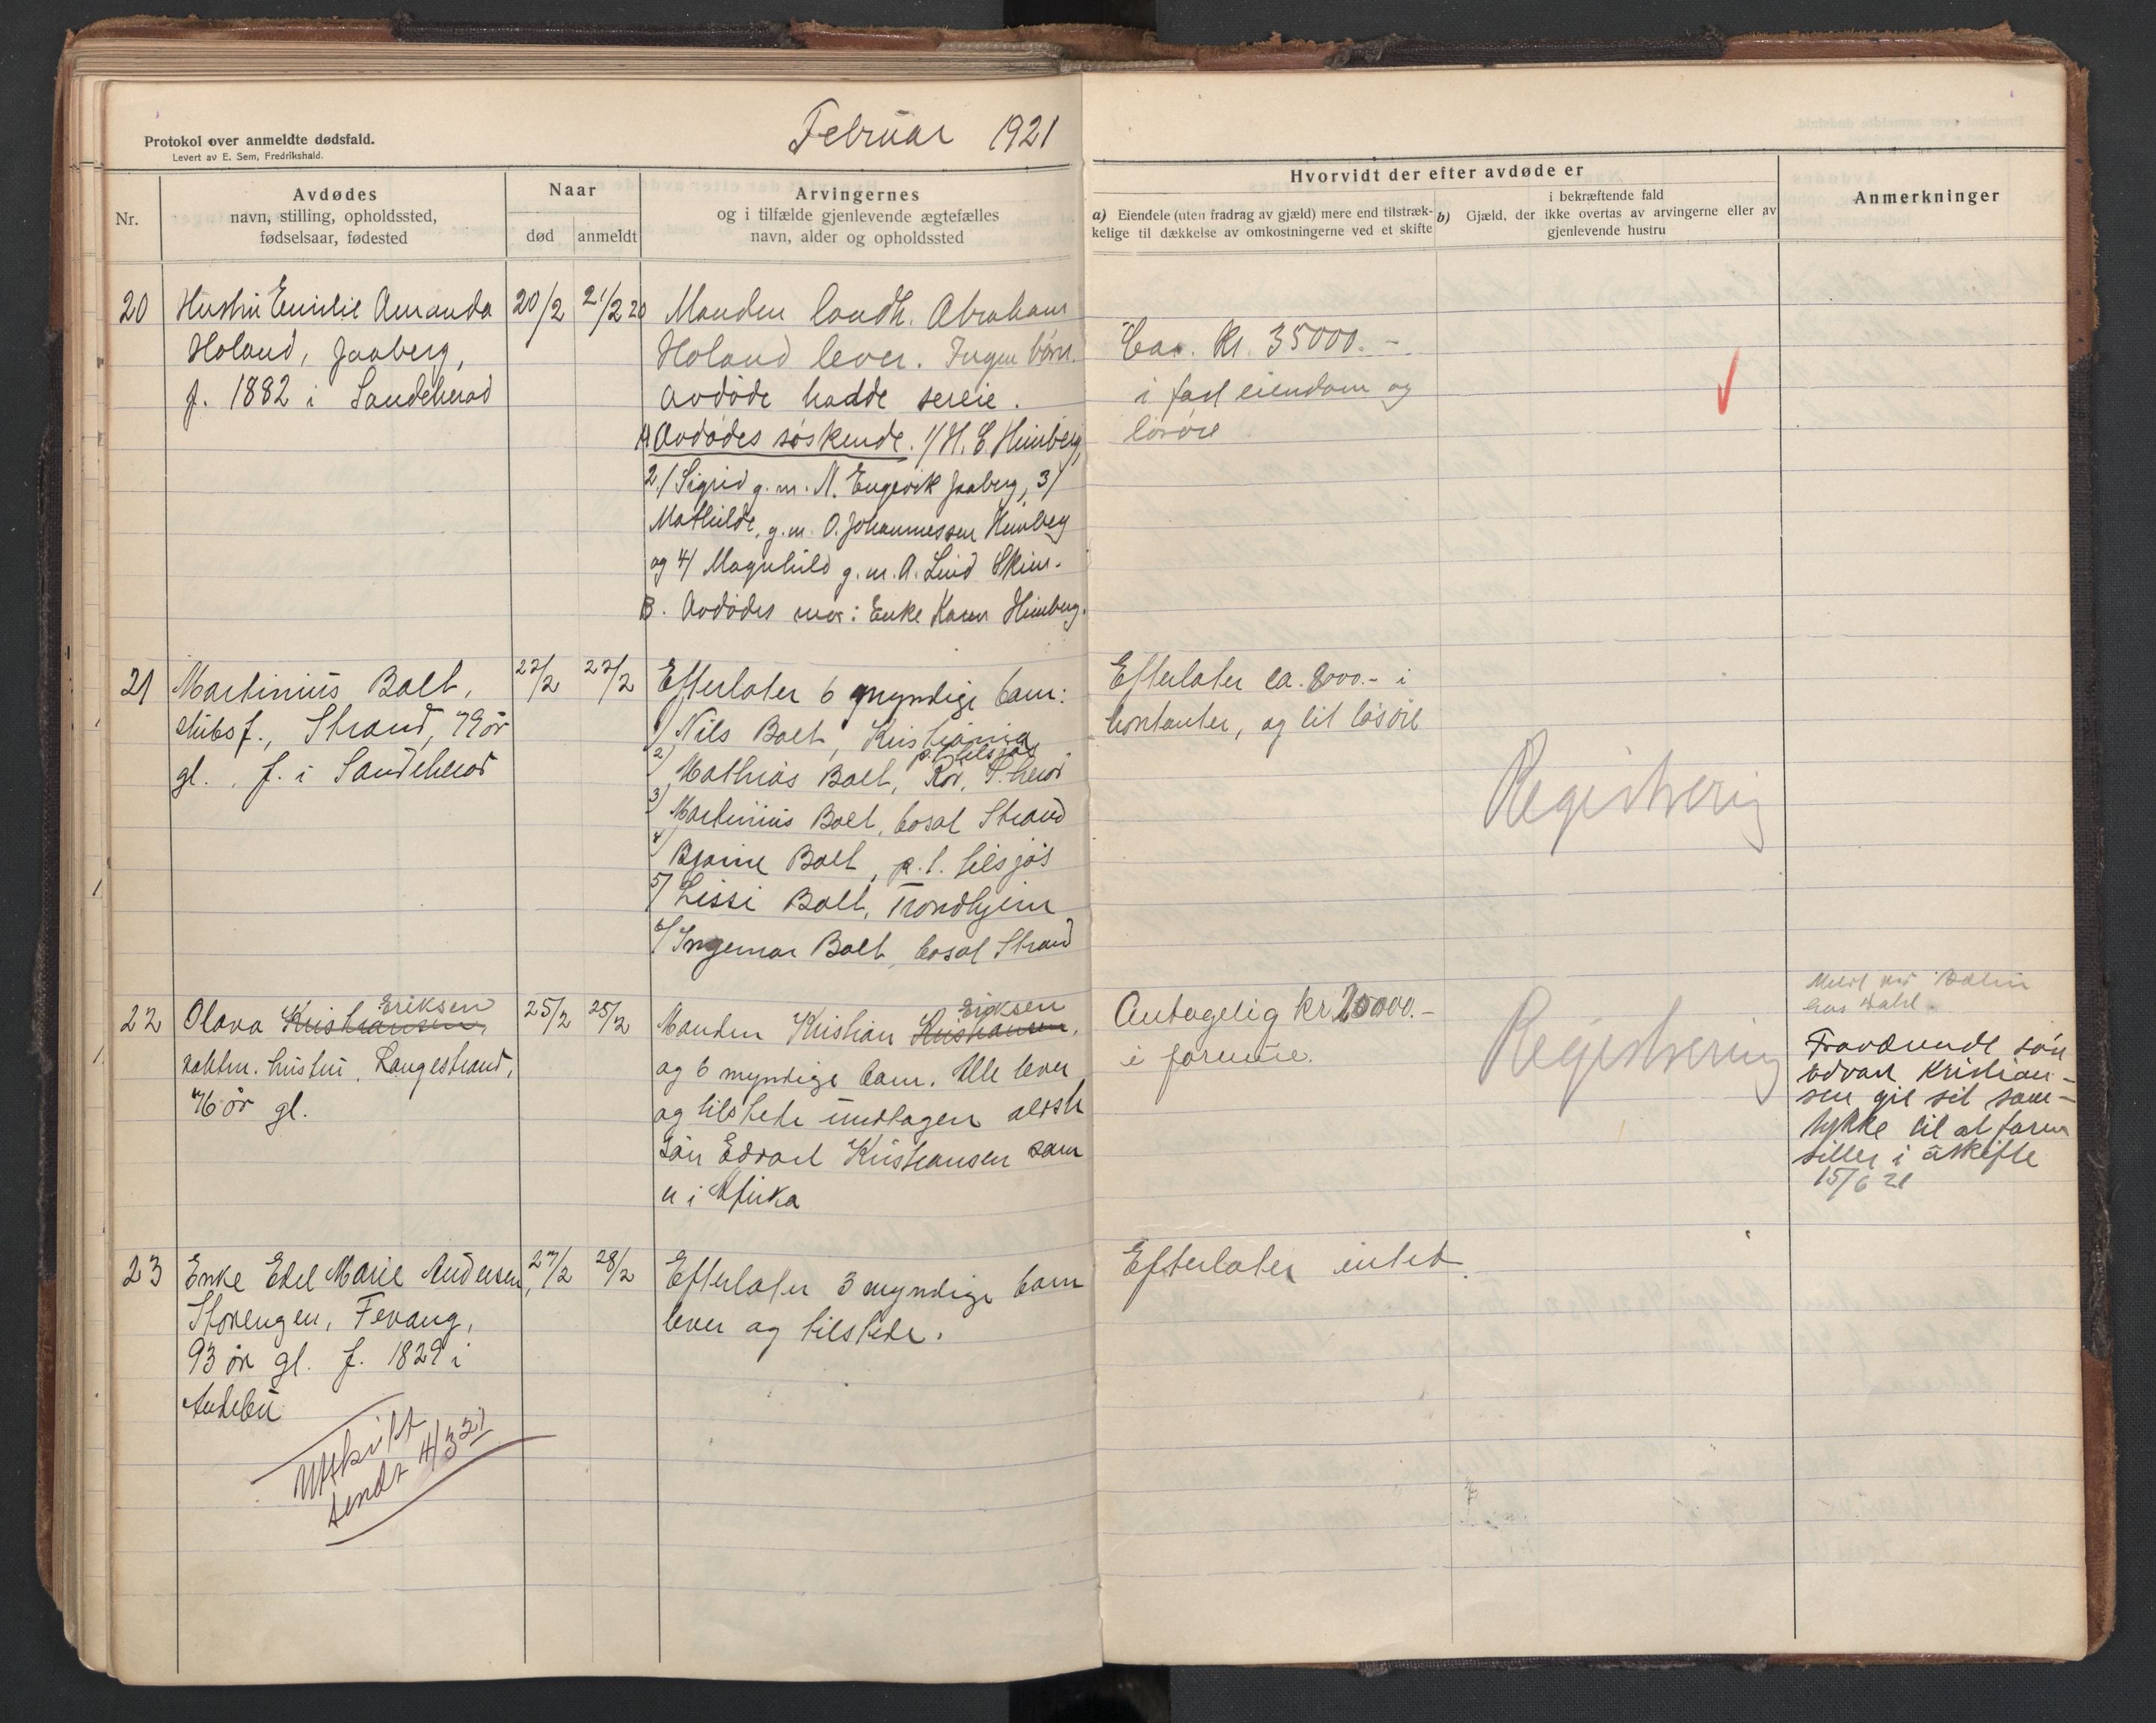 Februar 1921
Protokol over anmeldte dødsfald.
Levert av E. Sem, Fredrikshald.
Nr.
Avdødes
navn, stilling, opholdssted,
fødselsaar, fødested
Naar
død
anmeldt
Arvingernes
og i tilfælde gjenlevende ægtefælles
navn, alder og opholdssted
Hvorvidt der efter avdøde er
a) Eiendele (uten fradrag av gjæld) mere end tilstræk-
kelige til dækkelse av omkostningerne ved et skifte
i bekræftende fald
b) Gjæld, der ikke overtas av arvingerne eller av
gjenlevende hustru
Anmerkninger
20
Hustru Emilie Amanda
Holand, Jaaberg,
f. 1882 i Sandeherad
20/2
21/2 20
Manden landh. Abraham
Holand lever. Ingen børn.
Avdøde hadde sereie.
A Avdødes søskende. 1/ H. E. Himberg,
2/ Sigrid g. m. N. Engevik Jaaberg, 3/
Mathilde, g. m. O. Johannessen Himberg
og 4/ Magnhild g. m. A. Lind Skien.
B. Avdødes mor: Enke Karen Himberg.
Ca. kr. 35000.-
i fast eiendom og
løsøre
21
Martinius Bolt,
skibsf., Strand, 79 år
gl. f. i Sandeherad
22/2
22/2
Efterlater 6 myndige barn:
1/ Nils Bolt, Kristiania
p.t. tilsjøs
2/ Mathias Bolt, Rør, S.herad
3/ Martinius Bolt, bosat Strand
4/ Bjarne Bolt, p. t. tilsjøs
5/ Lissi Bolt, Trondhjem
6/ Ingemar Bolt, bosat Strand
Efterlater ca. 8000.- i
kontanter, og lit løsøre
Registrering
22
Eriksen
Olava Kristiansen,
hustru, Langestrand,
76 år gl.
25/2
25/2
Eriksen
Manden Kristian Kristiansen,
og 6 myndige barn. Alle lever
og tilstede undtagen ældste
søn Edvart Kristiansen som
er i Afrika
Antagelig kr. 20000.-
i formue.
Registrering
Fraværende søn
Edvart Kristian-
sen gir sit sam-
tykke til at faren
sitter i uskifte
15/6 21
23
Enke Edel Marie Andersen,
Storengen, Fevang,
93 år gl. f. 1829 i
Andebu
27/2
28/2
Efterlater 3 myndige barn
lever og tilstede.
Efterlater intet.
Utskrift
sendt 4/3 21